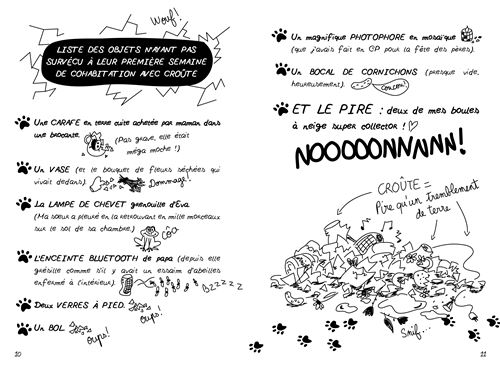 Wouf!
LISTE DES OBJETS N'AYANT PAS
SURVÉCU À LEUR PREMIÈRE SEMAINE
DE COHABITATION AVEC CROÛTE
Une CARAFE en terre cuite achetée par maman dans
une brocante.
(Pas grave, elle était
méga moche !)
Un VASE (et le bouquet de fleurs séchées qui
vivait dedans).
Dommage!
La LAMPE DE CHEVET grenouille d'Eva
(Ma sœur a pleuré en la retrouvant en mille morceaux
sur le sol de sa chambre.)
Côa
L'ENCEINTE BLUETOOTH de papa (depuis elle
grésille comme s'il y avait un essaim d'abeilles
enfermé à l'intérieur).
Bzzzzz
Deux VERRES À PIED.
oups!
Un BOL.
oups!
10
Un magnifique PHOTOPHORE en mosaïque
(que j'avais fait en CP pour la fête des pères).
Un BOCAL DE CORNICHONS (presque vide,
heureusement).
ET LE PIRE : deux de mes boules
à neige super collector !
NOOOOONNNNN!
CROÛTE =
Pire qu'un tremblement
de terre
Snif...
11